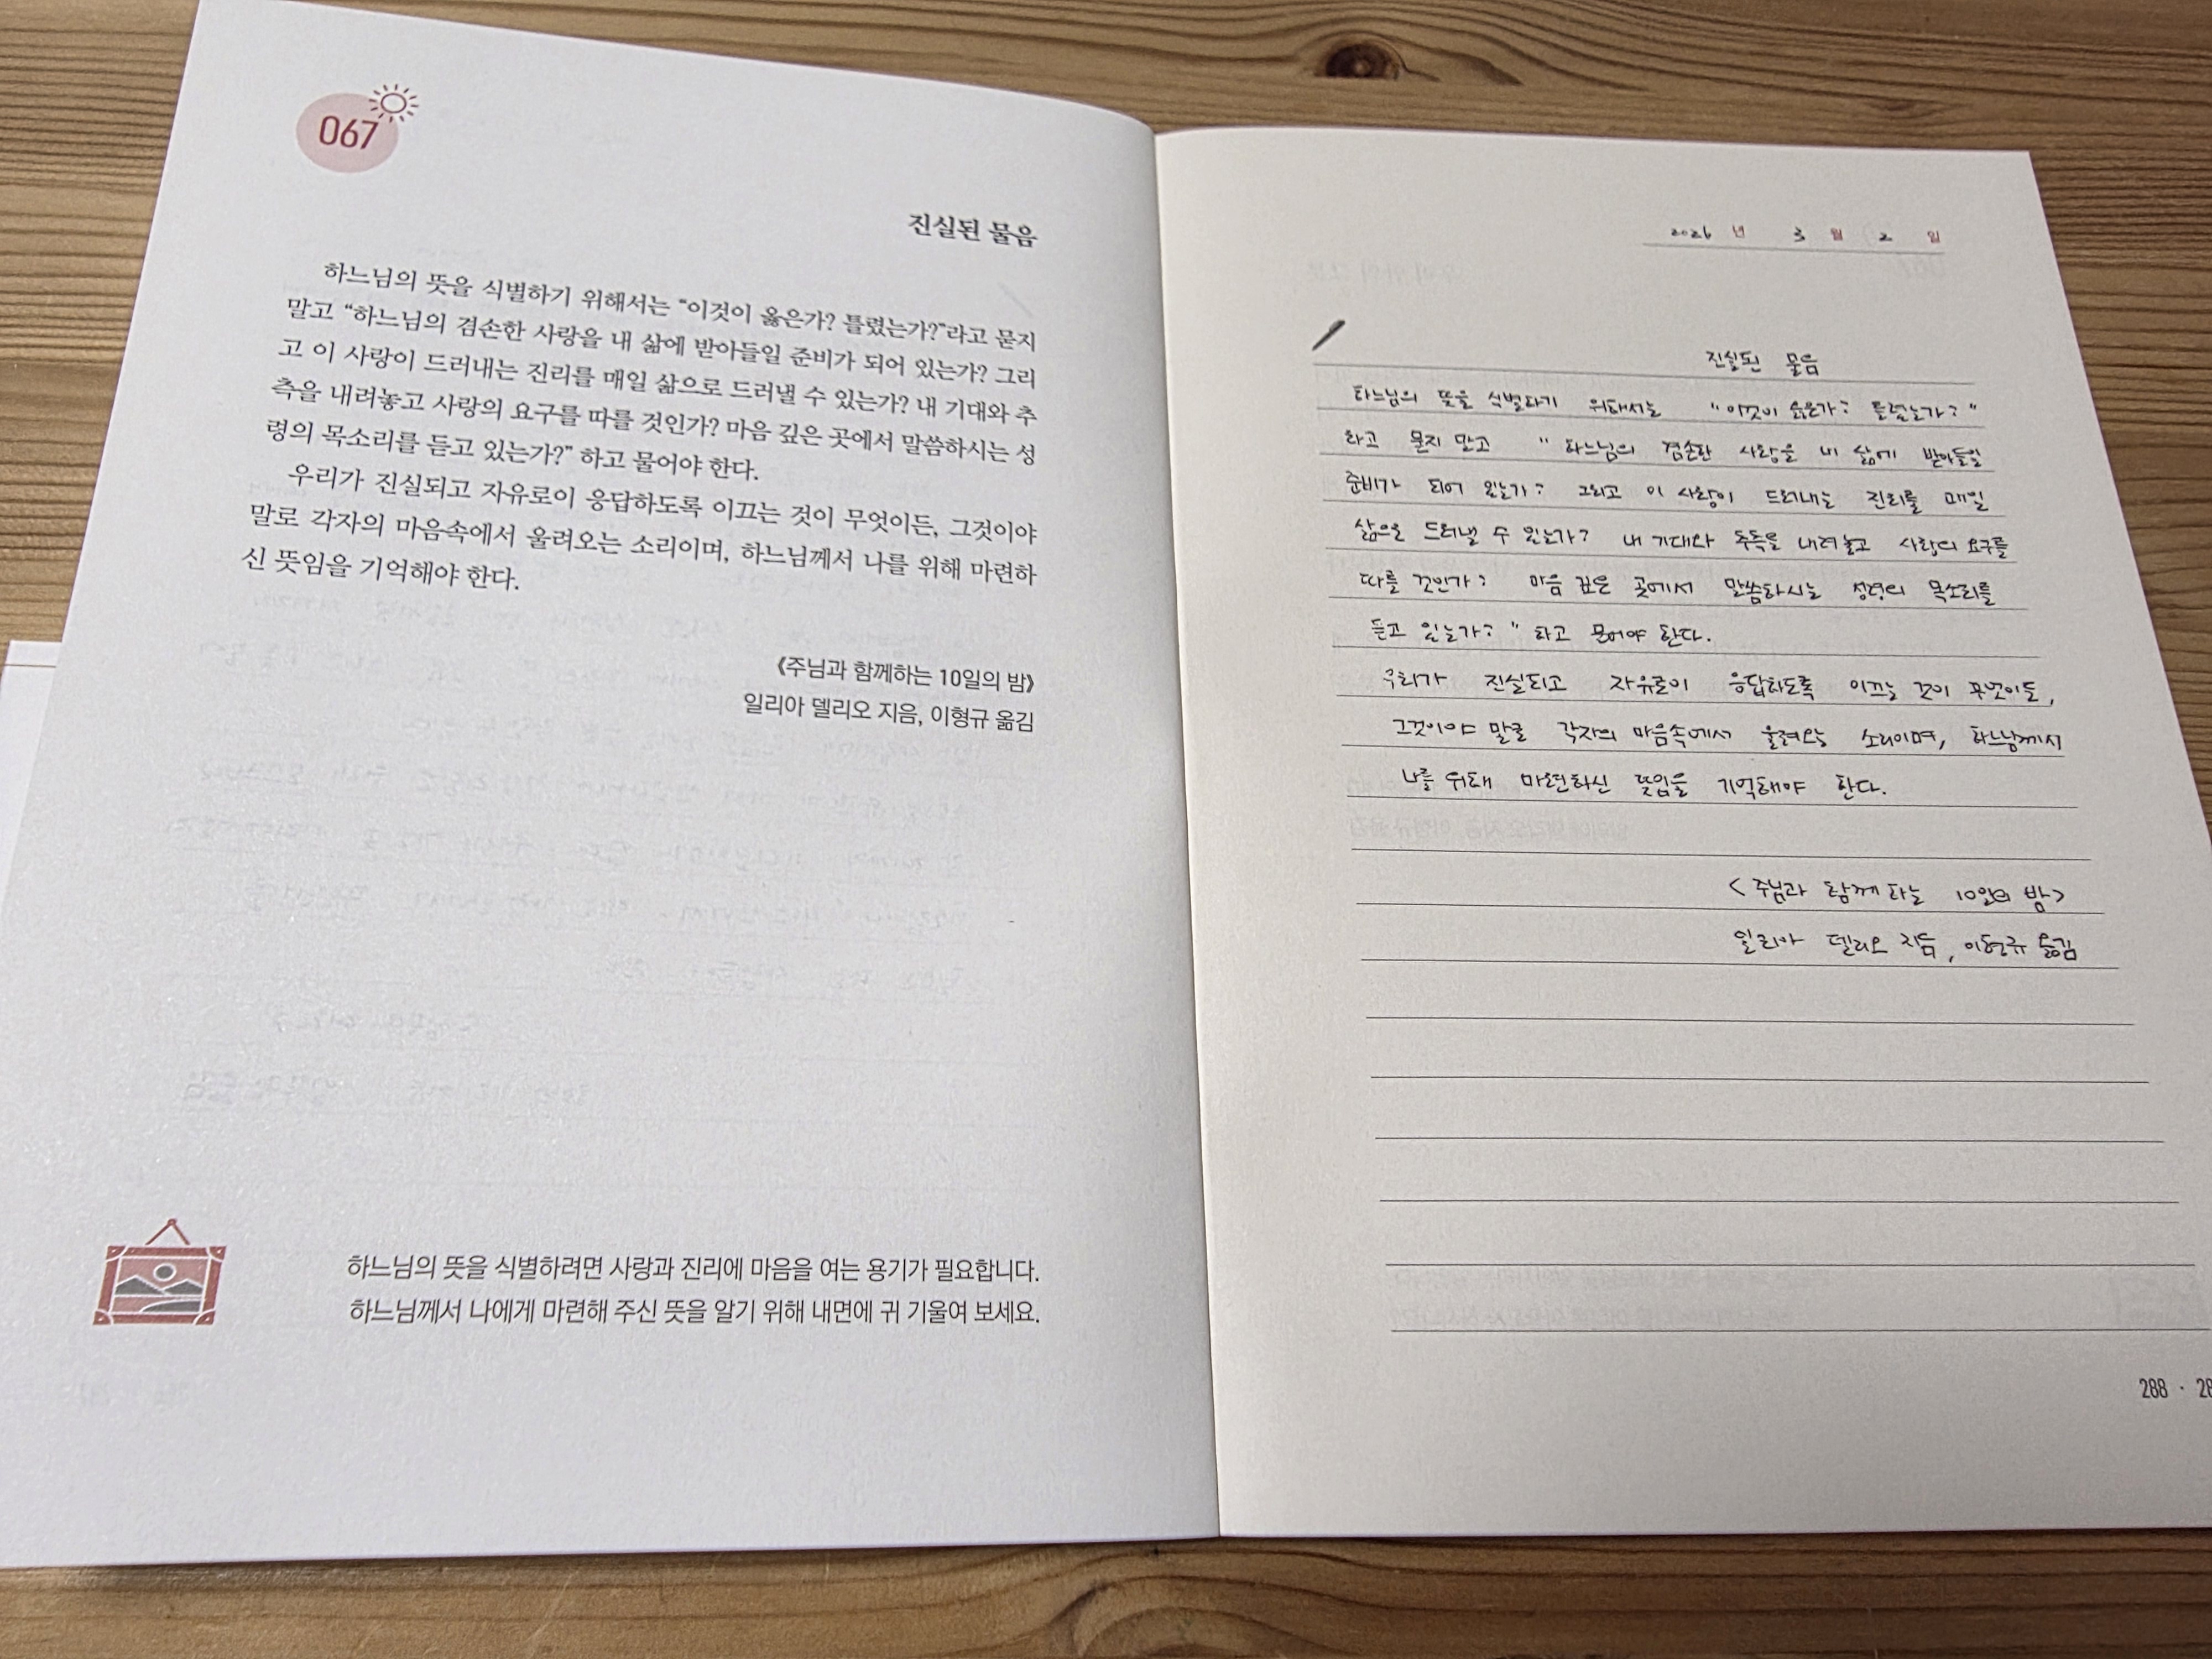 067
진실된 물음
하느님의 뜻을 식별하기 위해서는 “이것이 옳은가? 틀렸는가?”라고 묻지
말고 “하느님의 겸손한 사랑을 내 삶에 받아들일 준비가 되어 있는가? 그리
고 이 사랑이 드러내는 진리를 매일 삶으로 드러낼 수 있는가? 내 기대와 추
측을 내려놓고 사랑의 요구를 따를 것인가? 마음 깊은 곳에서 말씀하시는 성
령의 목소리를 듣고 있는가?” 하고 물어야 한다.
우리가 진실되고 자유로이 응답하도록 이끄는 것이 무엇이든, 그것이야
말로 각자의 마음속에서 울려오는 소리이며, 하느님께서 나를 위해 마련하
신 뜻임을 기억해야 한다.
《주님과 함께하는 10일의 밤》
일리아 델리오 지음, 이형규 옮김
하느님의 뜻을 식별하려면 사랑과 진리에 마음을 여는 용기가 필요합니다.
하느님께서 나에게 마련해 주신 뜻을 알기 위해 내면에 귀 기울여 보세요.
2026 년 3 월 2 일
진실된 물음
하느님의 뜻을 식별하기 위해서는 “이것이 옳은가? 틀렸는가?”
라고 묻지 말고 “하느님의 겸손한 사랑을 내 삶에 받아들일
준비가 되어 있는가? 그리고 이 사랑이 드러내는 진리를 매일
삶으로 드러낼 수 있는가? 내 기대와 추측을 내려놓고 사랑의 요구를
따를 것인가? 마음 깊은 곳에서 말씀하시는 성령의 목소리를
듣고 있는가?” 하고 물어야 한다.
우리가 진실되고 자유로이 응답하도록 이끄는 것이 무엇이든,
그것이야 말로 각자의 마음속에서 울려오는 소리이며, 하느님께서
나를 위해 마련하신 뜻임을 기억해야 한다.
<주님과 함께 하는 10일의 밤>
일리아 델리오 지음, 이형규 옮김
288 · 28